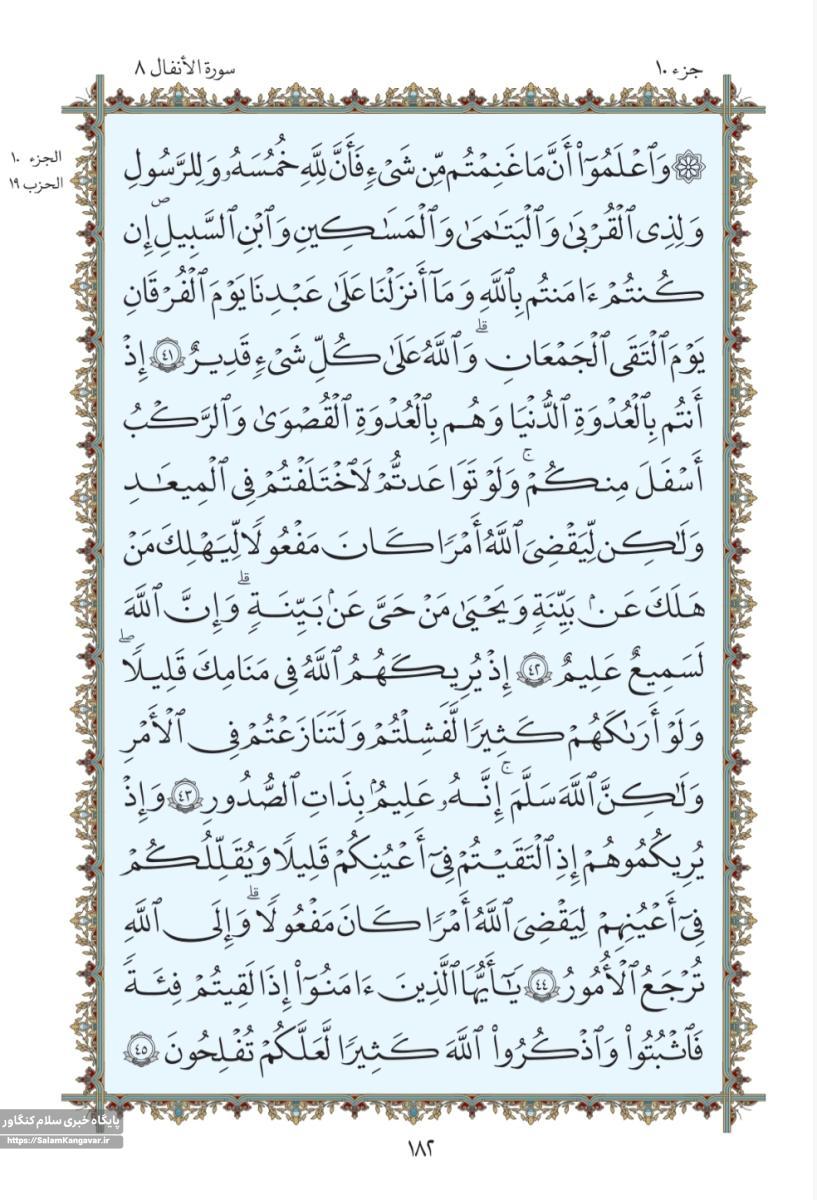 جزء ١٠
سورة الأنفال ٨
الجزء ١٠
الحزب ١٩
۞ وَٱعۡلَمُوٓاْ أَنَّمَا غَنِمۡتُم مِّن شَيۡءٖ فَأَنَّ لِلَّهِ خُمُسَهُۥ وَلِلرَّسُولِ
وَلِذِي ٱلۡقُرۡبَىٰ وَٱلۡيَتَٰمَىٰ وَٱلۡمَسَٰكِينِ وَٱبۡنِ ٱلسَّبِيلِ إِن
كُنتُمۡ ءَامَنتُم بِٱللَّهِ وَمَآ أَنزَلۡنَا عَلَىٰ عَبۡدِنَا يَوۡمَ ٱلۡفُرۡقَانِ
يَوۡمَ ٱلۡتَقَى ٱلۡجَمۡعَانِۗ وَٱللَّهُ عَلَىٰ كُلِّ شَيۡءٖ قَدِيرٌ ٤١ إِذۡ
أَنتُم بِٱلۡعُدۡوَةِ ٱلدُّنۡيَا وَهُم بِٱلۡعُدۡوَةِ ٱلۡقُصۡوَىٰ وَٱلرَّكۡبُ
أَسۡفَلَ مِنكُمۡۚ وَلَوۡ تَوَاعَدتُّمۡ لَٱخۡتَلَفۡتُمۡ فِي ٱلۡمِيعَٰدِ
وَلَٰكِن لِّيَقۡضِيَ ٱللَّهُ أَمۡرٗا كَانَ مَفۡعُولٗا لِّيَهۡلِكَ مَنۡ
هَلَكَ عَنۢ بَيِّنَةٖ وَيَحۡيَىٰ مَنۡ حَيَّ عَنۢ بَيِّنَةٖۗ وَإِنَّ ٱللَّهَ
لَسَمِيعٌ عَلِيمٌ ٤٢ إِذۡ يُرِيكَهُمُ ٱللَّهُ فِي مَنَامِكَ قَلِيلٗاۖ
وَلَوۡ أَرَىٰكَهُمۡ كَثِيرٗا لَّفَشِلۡتُمۡ وَلَتَنَٰزَعۡتُمۡ فِي ٱلۡأَمۡرِ
وَلَٰكِنَّ ٱللَّهَ سَلَّمَۚ إِنَّهُۥ عَلِيمُۢ بِذَاتِ ٱلصُّدُورِ ٤٣ وَإِذۡ
يُرِيكُمُوهُمۡ إِذِ ٱلۡتَقَيۡتُمۡ فِيٓ أَعۡيُنِكُمۡ قَلِيلٗا وَيُقَلِّلُكُمۡ
فِيٓ أَعۡيُنِهِمۡ لِيَقۡضِيَ ٱللَّهُ أَمۡرٗا كَانَ مَفۡعُولٗاۗ وَإِلَى ٱللَّهِ
تُرۡجَعُ ٱلۡأُمُورُ ٤٤ يَٰٓأَيُّهَا ٱلَّذِينَ ءَامَنُوٓاْ إِذَا لَقِيتُمۡ فِئَةٗ
فَٱثۡبُتُواْ وَٱذۡكُرُواْ ٱللَّهَ كَثِيرٗا لَّعَلَّكُمۡ تُفۡلِحُونَ ٤٥
١٨٢
پایگاه خبری سلام کنگاور
https://SalamKangavar.ir